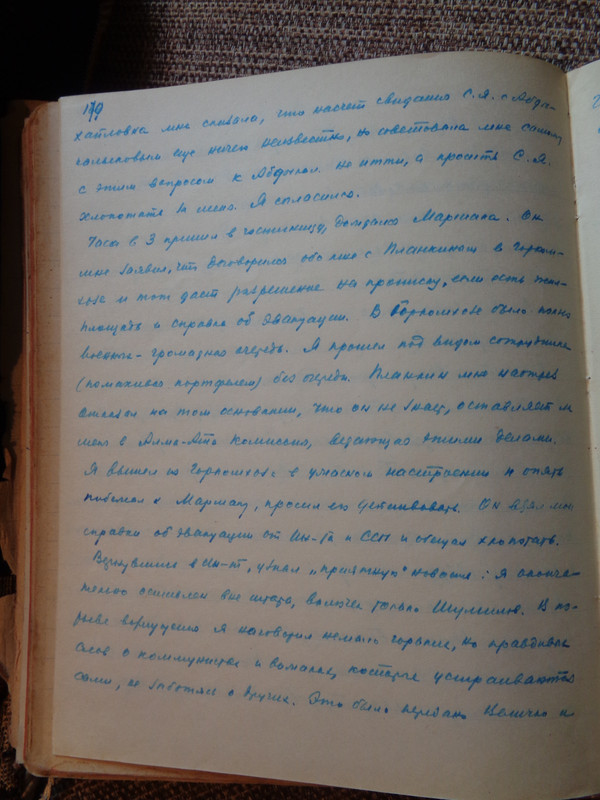 179
хаиловка мне сказала, что насчет свидания С.Я. с Абда-
еще ничего неизвестно, но советовала мне самому
с этим вопросом к не итти, а просить С.Я.
хлопотать за меня. Я согласился.
Часа в 3 пришел в гостиницу, Он
мне заявил, что договорился обо мне с Планкиным в Горпом-
хозе и тот даст разрешение на прописку, если есть жил-
площадь и справка об эвакуации. В Горпомхозе было полно
военных - громадная очередь. Я прошел под видом сотрудника
(помахивая портфелем) без очереди. Планкин мне наотрез
отказал на том основании, что он не знает, оставляет ли
меня в Алма-Ата комиссия, ведающая этими делами.
Я вышел из Горпомхоза в ужасном настроении и опять
побежал к просил его Он взял мои
справки об эвакуации от Ин-та и ССП и обещал хлопотать.
Вернувшись в Ин-т, узнал „приятную“ новость: я оконча-
тельно оставлен вне штата, включен только В по-
рыве возмущения я наговорил немало горьких, но правдивых
слов о коммунистах и которые устраиваются
сами, не заботясь о других. Это было передано Величко и